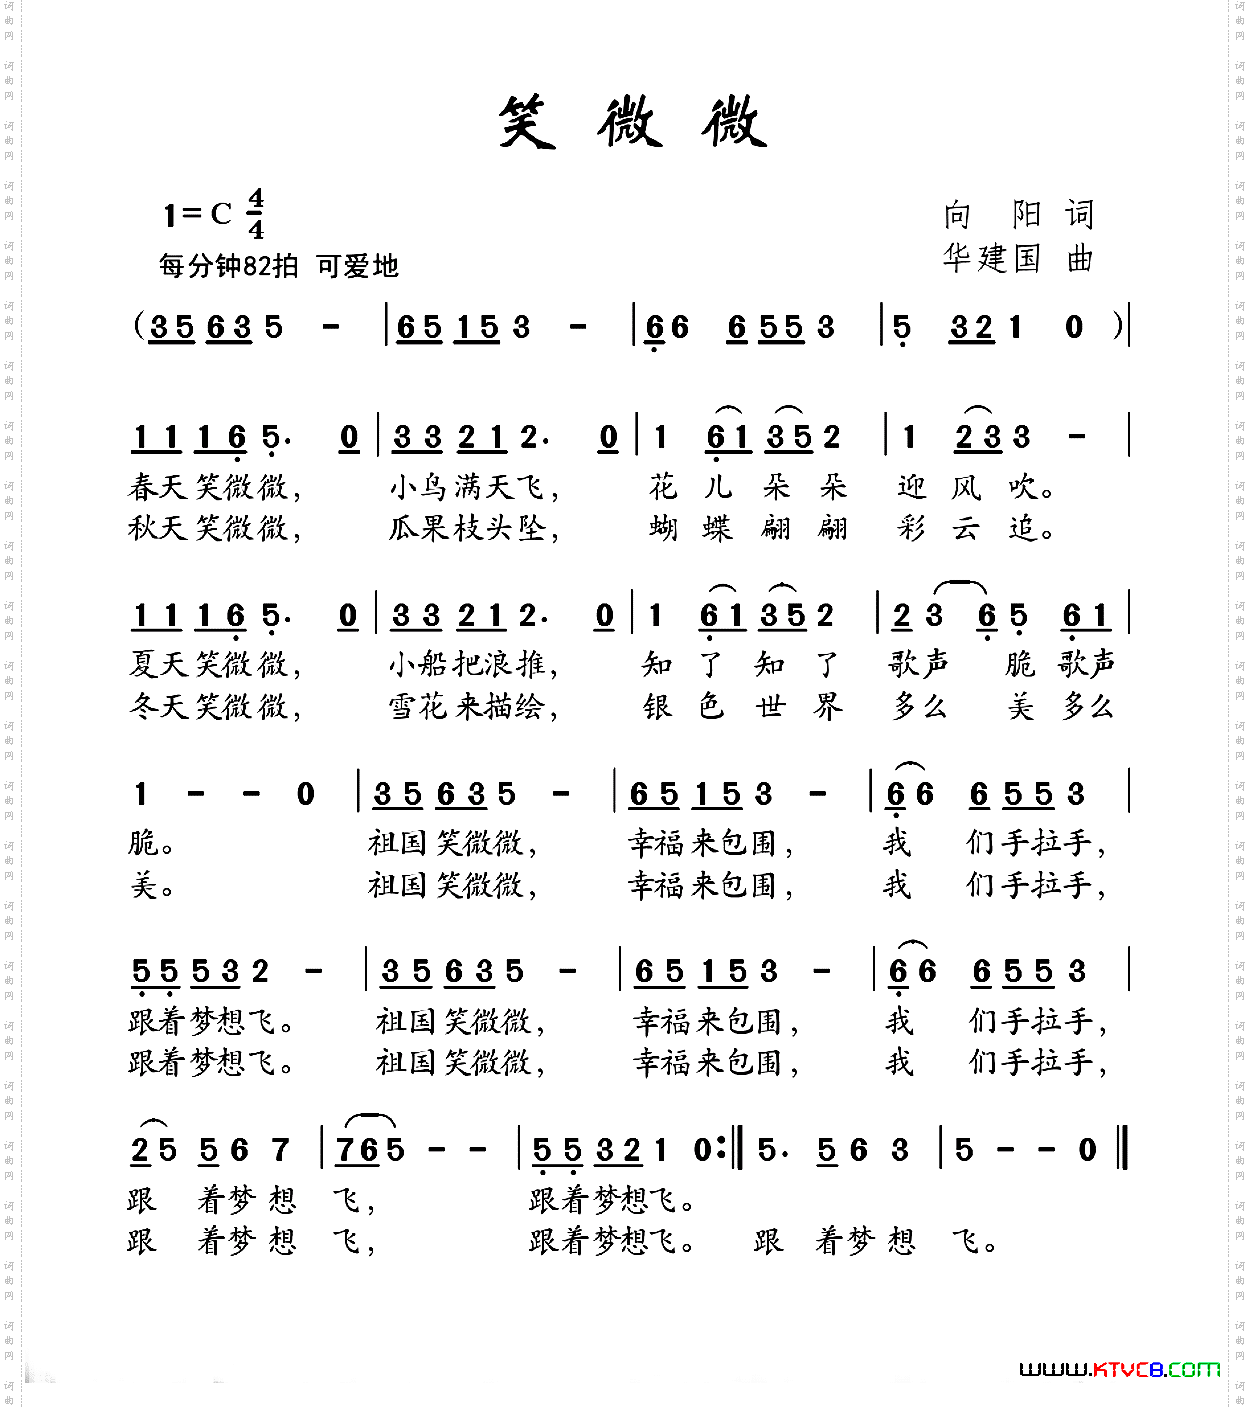 笑微微
1=C 4/4
向阳词
每分钟82拍 可爱地
华建国 曲
(35 63 5 - | 65 15 3 - | 66 6 55 3 | 5 32 1 0 )|
11 16 5. 0 | 33 21 2. 0 | 1 61 35 2 | 1 23 3 - |
春天笑微微, 小鸟满天飞, 花儿朵朵 迎风吹。
秋天笑微微, 瓜果枝头坠, 蝴蝶翩翩 彩云追。
11 16 5. 0 | 33 21 2. 0 | 1 61 35 2 | 2 3 6 5 61 |
夏天笑微微, 小船把浪推, 知了知了 歌声 脆歌声
冬天笑微微, 雪花来描绘, 银色世界 多么 美多么
1 - - 0 | 35 63 5 - | 65 15 3 - | 66 6 55 3 |
脆。 祖国笑微微, 幸福来包围, 我 们手拉手,
美。 祖国笑微微, 幸福来包围, 我 们手拉手,
55 53 2 - | 35 63 5 - | 65 15 3 - | 66 6 55 3 |
跟着梦想飞。 祖国笑微微, 幸福来包围, 我 们手拉手,
跟着梦想飞。 祖国笑微微, 幸福来包围, 我 们手拉手,
25 5 6 7 | 765 - - | 55 321 0 :‖ 5. 5 6 3 | 5 - - 0 ‖
跟 着梦想 飞, 跟着梦想飞。
跟 着梦想 飞, 跟着梦想飞。 跟 着梦想 飞。
www.KTVC8.com